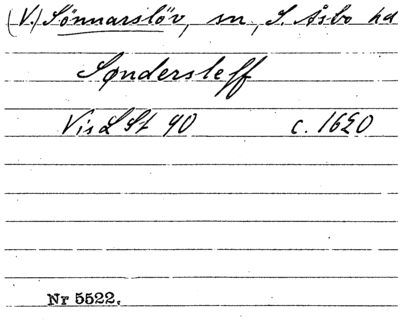 (V.) Sönnarslöv, sn, S. Åsbo hd
Søndersleff
Vis L St 90 c. 1620
Nr 5522.